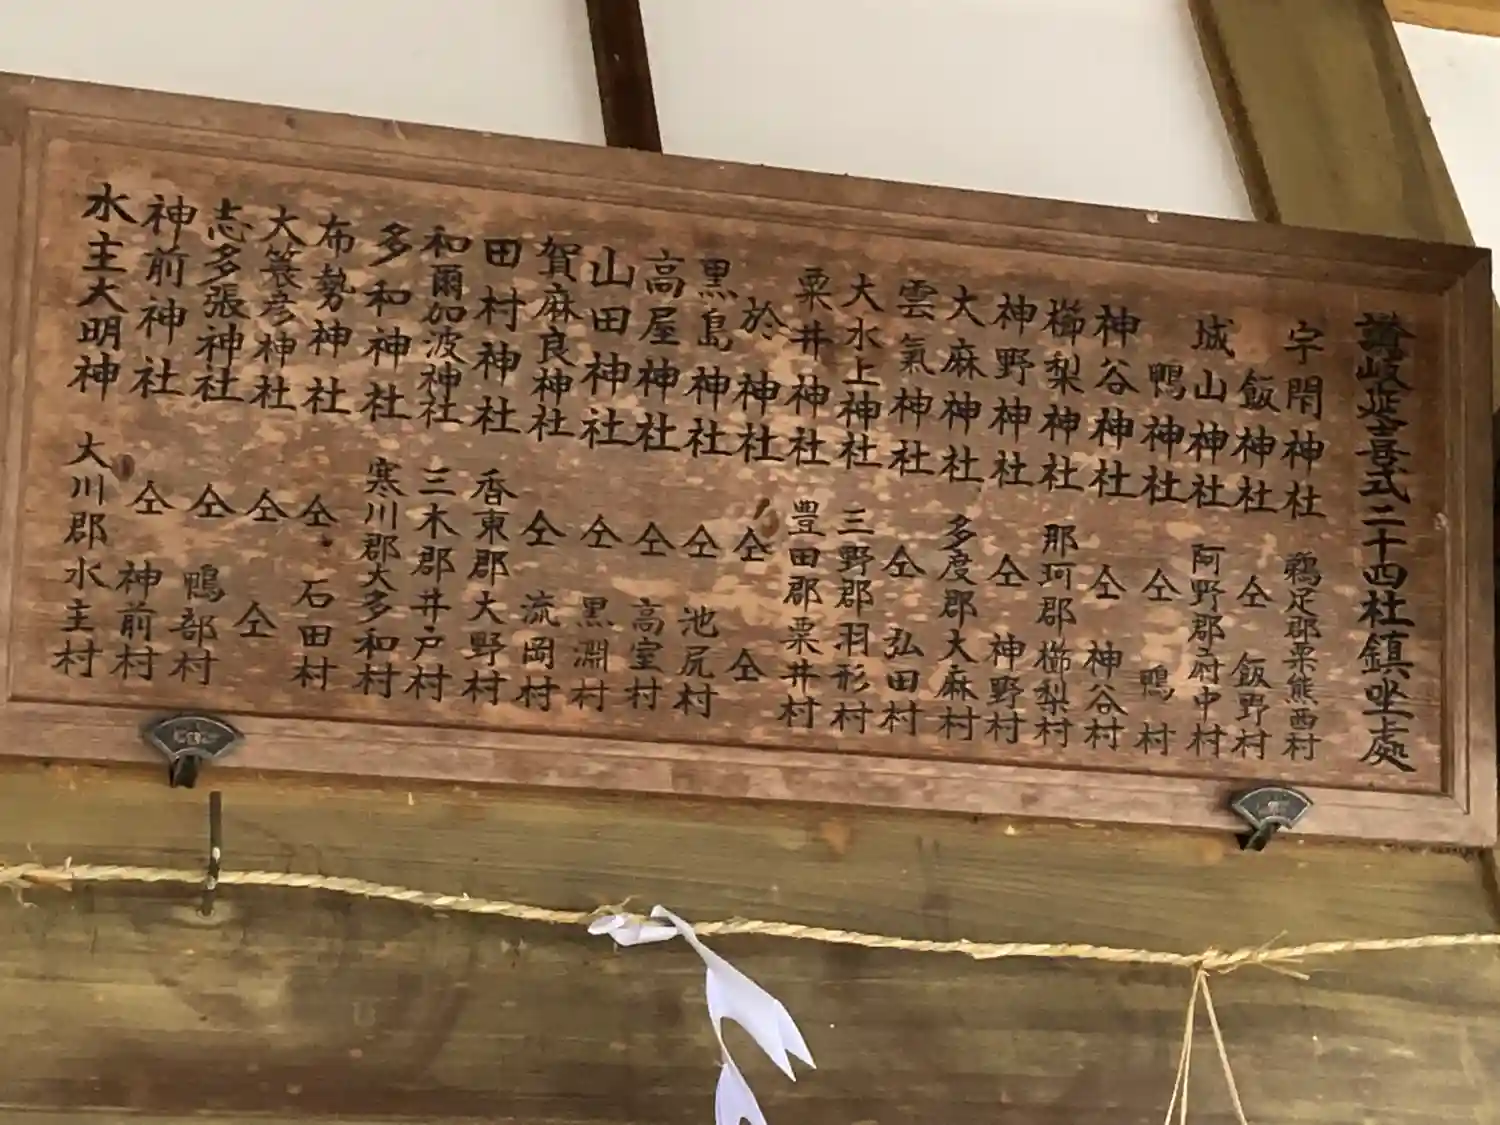 讃岐延喜式二十四社鎮坐處
宇閇神社 鵜足郡栗熊西村
飯神社 仝 飯野村
城山神社 阿野郡府中村
鴨神社 仝 鴨村
神谷神社 仝 神谷村
櫛梨神社 那珂郡櫛梨村
神野神社 仝 神野村
大麻神社 多度郡大麻村
雲氣神社 仝 弘田村
大水上神社 三野郡羽形村
粟井神社 豊田郡粟井村
於神社 仝 仝
黒島神社 仝 池尻村
高屋神社 仝 高室村
山田神社 仝 黒淵村
賀麻良神社 仝 流岡村
田村神社 香東郡大野村
和爾加波神社 三木郡井戸村
多和神社 寒川郡大多和村
布勢神社 仝 石田村
大蓑彦神社 仝 仝
志多張神社 仝 鴨部村
神前神社 仝 神前村
水主大明神 大川郡水主村